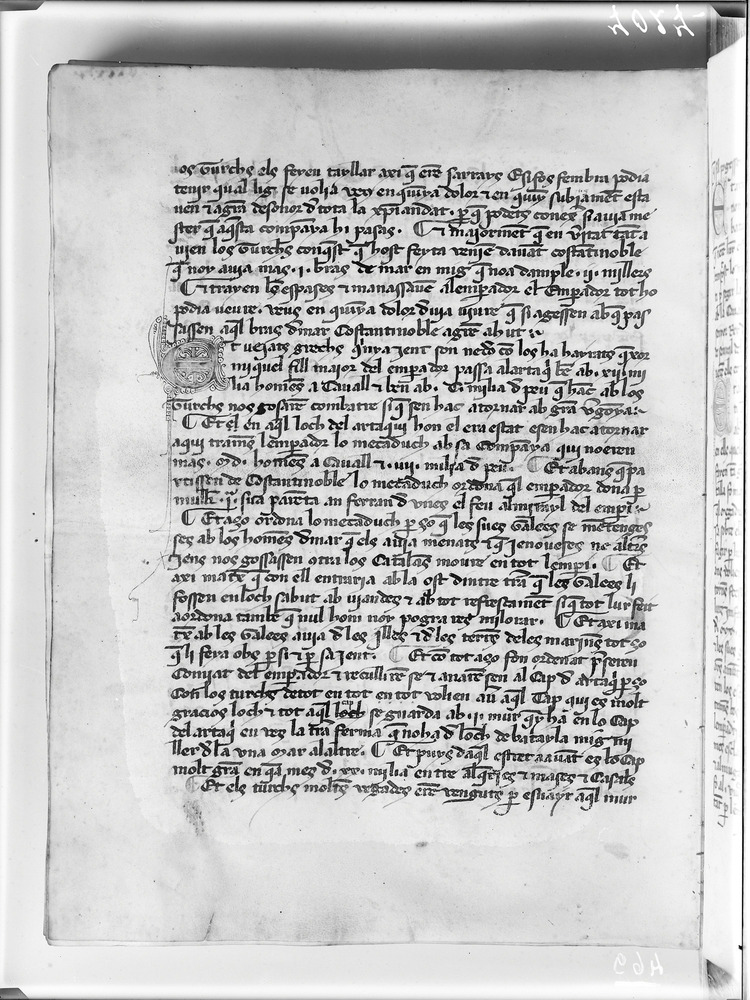 los turchs els feyen tayllar axi q̄ erē sarrayns E sifos fembra podia
tenir qual lig se volia veus en quinya dolor & en quiny subjamēt esta
uen & agrā desonor d tota la xp̄iandat · ꝑ q̄ podets conex̄ si auia me
ster q̄ aq̄sta companya hi pasas · Et maiormēt q̄ en v̄itat tāt a
uien los turchs conq̄st q̄ host feyta veniē dauāt costātinoble
q̄ noy auia mas · i · bras de mar en mig q̄ noa dample · ii · millers
Et trayen les espases & manassaue al emperador el Emperador tot ho
podia veure · veus en quinya dolor deuia viure q̄ si agessen ab q̄ pas
sassen aq̄l bras d mar Costantinoble agrē ahut
Et veiats grechs q̄nya jent son ne d cō los ha hayrats q̄ xor
miquel fill maior del emꝑador passa al artaq̄ bē ab · xii · mi
lia homēs a Cauall & bē ab · C · milia d peu q̄ hāc ab los
turchs nos gosarē combatre si q̄ sen hac a tornar ab grā ṽgoya
Et el en aq̄l loch del artaqui hon el era estat e sen hac a tornar
aqui trames lemperador lo megaduch ab sa Companya qui no eren
mas · M d · homēs a Cauall & · iiii · milia d peu · Et abans q̄ pa
rtissen de Costantinoble lo megaduch ordona q̄l emperador dona ꝑ
mullē · i · sua parenta an ferran d unes el feu almirayl del empi
Et aço ordona lo megaduch ꝑ ço q̄ les sues Galees se metenges
ses ab los homēs d mar q̄ els auia menats & q̄ Jenoueses ne altres
Jens nos gossassen otra los Catalans moure en tot lempi · Et
axi matex q̄ con ell entraria ab la ost dintre trā q̄ les Galees li
fossen en loch sabut ab viandes & ab tot refrescamēt si q̄ tot lur feit
aordona tambē q̄ nul hom noy pogra res milorar · Et axi ma
tex ab les Galees auia d les illes & d les terres de les marines tot ço
q̄ li feya obs ꝑ si & ꝑ sa Jent · Et cō tot aço fon ordenat pr̄seren
Comiat del emꝑador & recullirē se & anarē sen al Cap d artaq̄ ꝑ ço
Con los turchs de tot en tot volien au aq̄l Cap qui es molt
gracios loch & tot aq̄l loch se guarda ab · iii · mur q̄y ha en lo Cap
del artaq̄ en ves la trā ferma q̄ no ha d loch de batayla mig mi
ller d la una mar al altre · Et puys d aq̄l estret auāt es lo Cap
molt grā en q̄ a mes d · xx · milia entre alq̄ries & mases & Casals
Et els turchs moltes vegades erē venguts ꝑ esuayr aq̄l mur
469